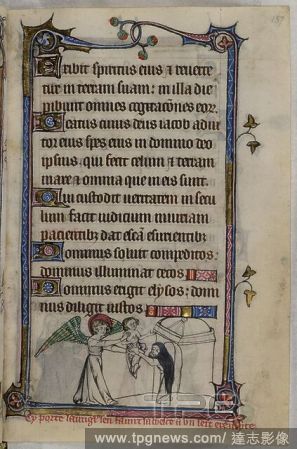 157
Exibit spiritus eius & reverte
tur in terram suam: in illa die
peribunt omnes cogitaciones eor
Beatus cuius deus iacob adiu
tor eius spes eius in domino deo
ipsius. qui fecit celum & terram
mare & omnia que in eis sunt.
Qui custodit ueritatem in secu
lum facit iudicium iniuriam
pacientibz dat escā esurientibz
Dominus soluit conpeditos:
dominus illuminat cecos
Dominus erigit elysos: domi
nus diligit iustos
Cy porte
www.tpgnews.com/達志影像